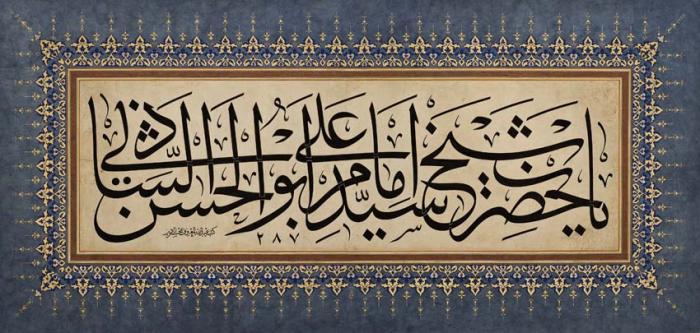 يا حضرت شيخ سيد امام علي ابو الحسن الشاذلي